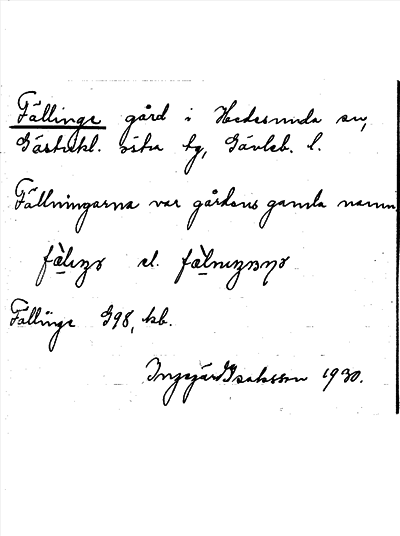 Fällinge gård i Hedesunda sn,
Gästrikl. östra tg, Gävleb. l.
Fällningarna var gårdens gamla namn.
el.
Fallinge G98, kb.
Ingegärd Isaksson 1930.